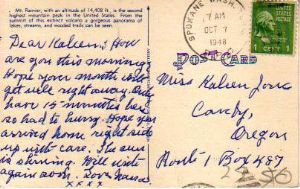 Mt. Rainier, with an altitude of 14,408 ft., is the second
highest mountain peak in the United States. From the
summit of this extinct volcano a gorgeous panorama of
lakes, streams, and wooded trails can be seen.
Dear Kaleen: How
are you this morning
Hope your mouth will
get well right away. Only
have 15 minutes here
so had to hurry. Hope you
arrived home right side
up with care. The sun
is shining. Will write
again soon. Love
xxxx
SPOKANE WASH.
7 AM
OCT 7
1948
1
POST CARD
Miss Kaleen
Canby,
Oregon
Route 1 Box 487